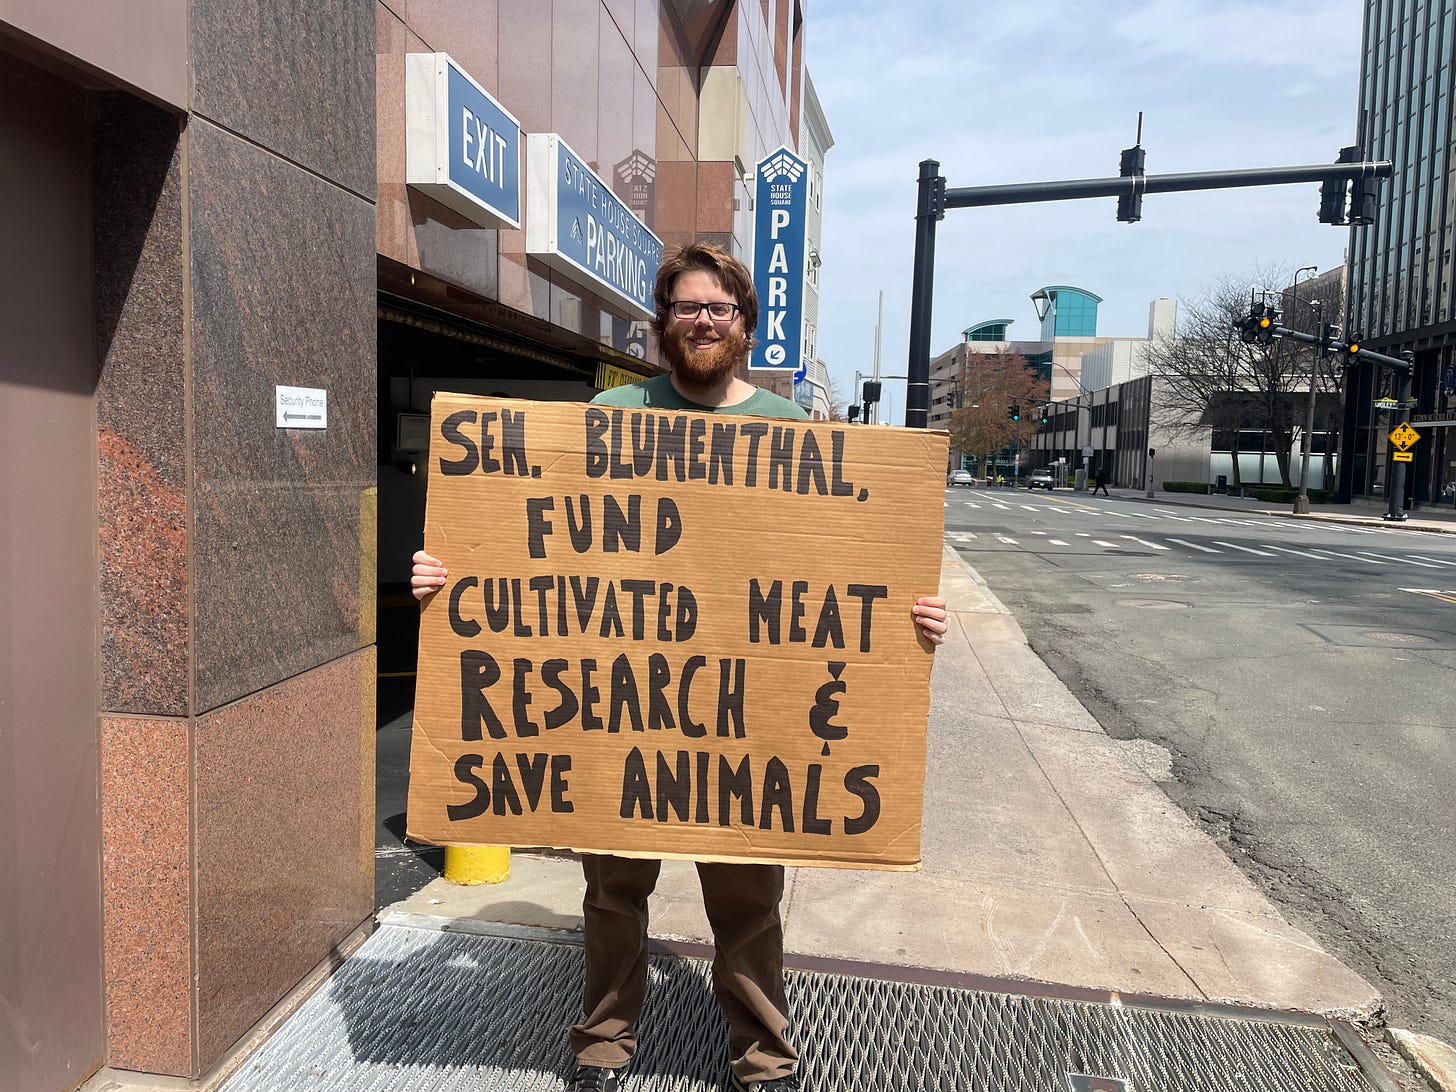 EXIT
STATE HOUSE SQUARE
PARKING
STATE
HOUSE
SQUARE
PARK
Security Phone
SEN. BLUMENTHAL,
FUND
CULTIVATED MEAT
RESEARCH &
SAVE ANIMALS
13'-0"